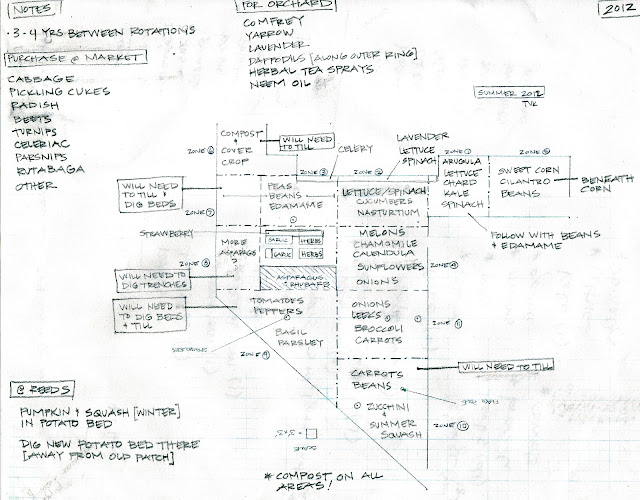 NOTES
· 3-4 YRS BETWEEN ROTATIONS
PURCHASE @ MARKET
CABBAGE
PICKLING CUKES
RADISH
BEETS
TURNIPS
CELERIAC
PARSNIPS
RUTABAGA
OTHER
FOR ORCHARD
COMFREY
YARROW
LAVENDER
DAFFODILS [ALONG OUTER RING]
HERBAL TEA SPRAYS
NEEM OIL
2012
SUMMER 2012
TVK
COMPOST
+
COVER
CROP
ZONE 6
WILL NEED
TO TILL
CELERY
LAVENDER
LETTUCE
SPINACH
ZONE 3
ZONE 2
ZONE 1
ARUGULA
LETTUCE
CHARD
KALE
SPINACH
SWEET CORN
CILANTRO
BEANS
BENEATH
CORN
FOLLOW WITH BEANS
& EDAMAME
WILL NEED
TO TILL &
DIG BEDS
ZONE 7
PEAS
BEANS
EDAMAME
LETTUCE/SPINACH
CUCUMBERS
NASTURTIUM
STRAWBERRY
GARLIC HERBS
GARLIC HERBS
MORE
ASPARAGUS
?
ZONE 8
MELONS
CHAMOMILE
CALENDULA
SUNFLOWERS
ONIONS
WILL NEED TO
DIG TRENCHES
ASPARAGUS
& RHUBARB
WILL NEED
TO DIG BEDS
& TILL
TOMATOES
PEPPERS
BASIL
PARSLEY
ZONE 9
ONIONS
LEEKS
BROCCOLI
CARROTS
ZONE 11
WILL NEED TO TILL
CARROTS
BEANS
ZUCCHINI
&
SUMMER
SQUASH
ZONE 12
SCALE
□ = 3'x3'
* COMPOST ON ALL
AREAS!
@ REEDS
PUMPKIN & SQUASH [WINTER]
IN POTATO BED
DIG NEW POTATO BED THERE
[AWAY FROM OLD PATCH]